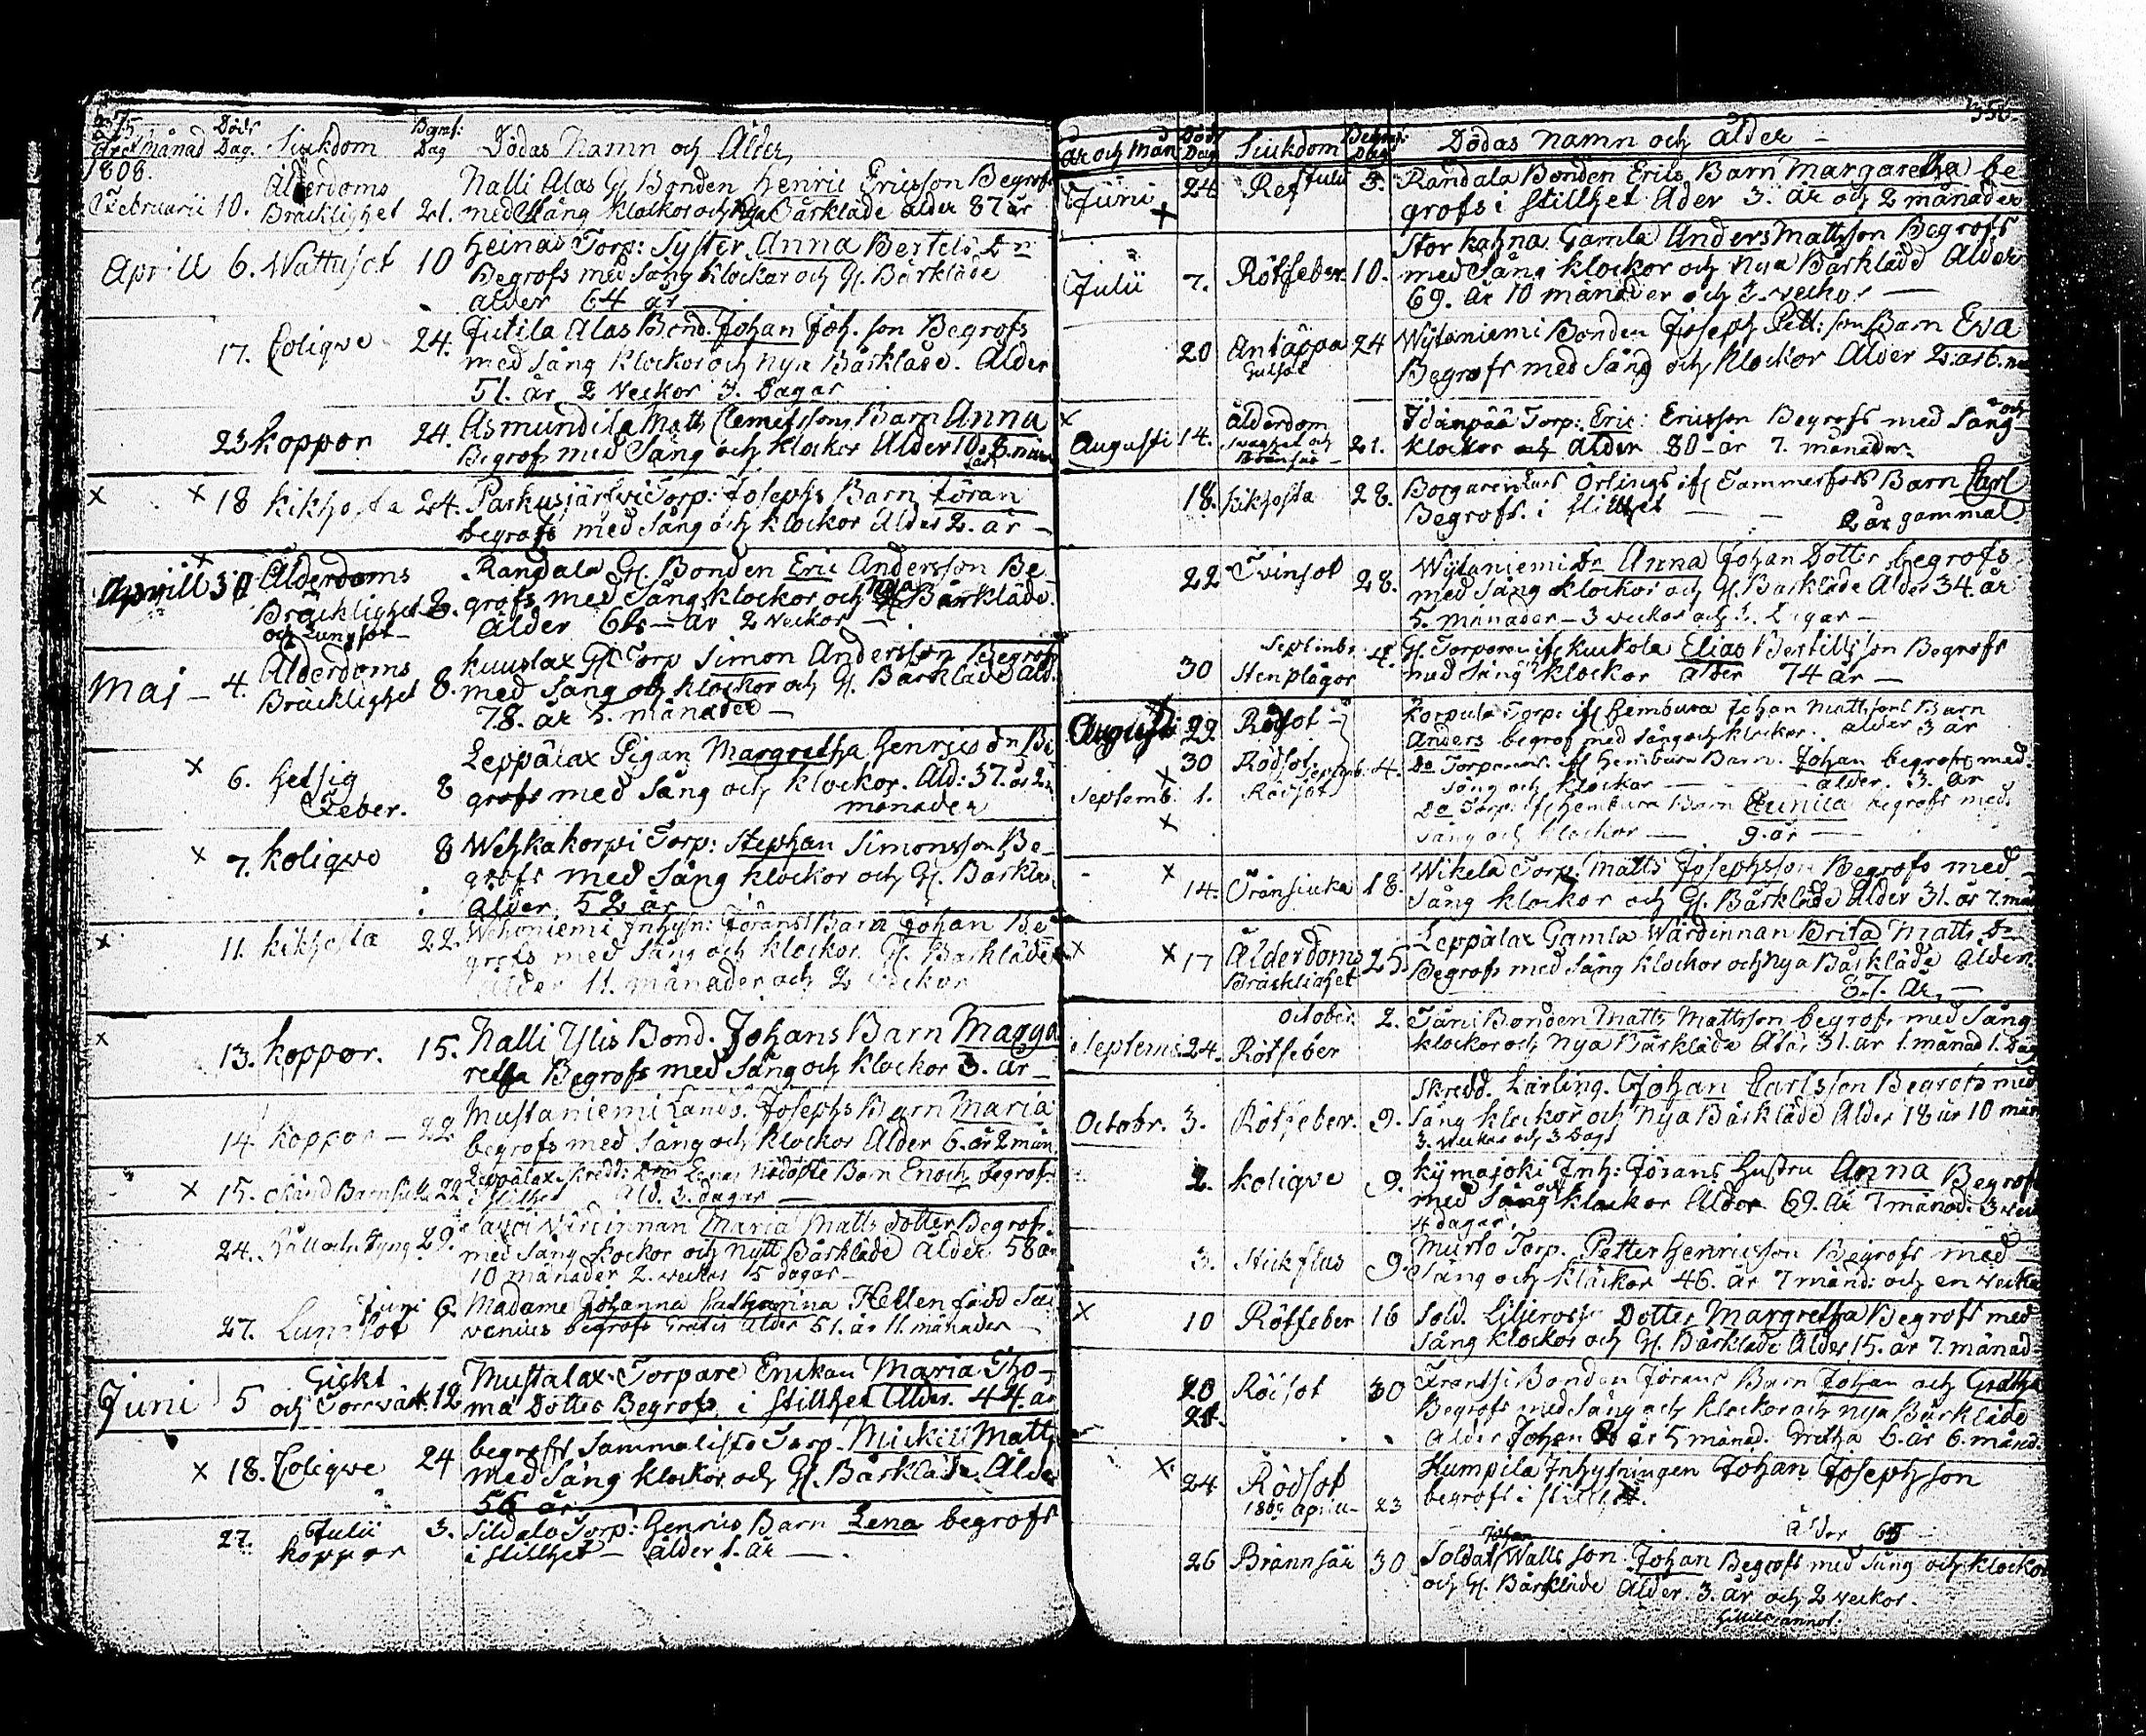 Året månad Döds Dag. Siukdom Begraf: Dag Dödas Namn och Ålder
1808.
Februarii 10. Ålderdoms Bräcklighet 21. Nalli Alas Gl. Bonden Henric Ericsson Begrofs
med Sång klockor och Nya Bårkläde ålder 87 år
Aprill 6. Wattusot 10 Heinas Torp: Syster Anna Bertels Dn
Begrofs med Sång klockor och Gl. Bårkläde
ålder 64 år
17. Coliqve 24. Jutila Alas Bond. Johan Joh. son Begrofs
med Sång klockor och nya Bårkläde. Ålder
51. år 2 Veckor 3. Dagar
23 koppor 24. Asmundila Matts Clemetssons Barn Anna
Begrofs med Sång och klockor Ålder
18 kikhosta 24. Paskusjärfvi Torp: Josephs Barn Jöran
begrofs med Sång och klockor Ålder 2. år
Aprill 30 Ålderdoms Bräcklighet och Lungsot 8. Randala Gl. Bonden Eric Andersson Be
grofs med Sång klockor och Nya Bårkläde.
Ålder år 2 Veckor
Maj 4. Ålderdoms Bräcklighet 8. kuuslax Gl. Torp Simon Andersson Begrofs
med Sång och klockor och Gl. Bårkläde Åld.
78. år 5. månader
6. Hetsig Feber. 8 Leppälax Pigan Margretha Henrics dn Be
grofs med Sång och klockor. Ald: 37. år 2
månader
7. koliqve 8 Wehkakorpi Torp: Stephan Simonsson Be
grofs med Sång klockor och Gl. Bårkläde
Ålder 52 år
11. kikhosta 22. Wehoniemi Inhysn: Jörans Barn Johan Be
grofs med Sång och klockor. Gl. Bårkläde
Ålder 11. månader och 2 Veckor
13. koppor. 15. Nalli Ylis Bond. Johans Barn Magga
retha Begrofs med Sång och klockor 3. år
14. koppor 22 Mustaniemi Lands. Josephs Barn Maria
begrofs med Sång och klockor Ålder 6. år 2 mån.
15. okänd Barnsiuk 22 Leppälax Barn Enoch Begrofs
i stillhet Åld. 3. dagar
24. Håll och Styng 29. Wärdinnan Maria Matts dotter Begrofs
med Sång klockor och nytt Bårkläde Ålder 58 år
10 månader 2. veckor 5 dagar
27. Lungsot Juni 6. Madame Johanna Catharina Hellen född
venius begrofs Gratis ålder 51. år 11. månader
Juni 5 Gickt och Torrvärk 12 Mustalax Torpare Enckan Maria Tho-
mæ Dotter Begrofs i stillhet Ålder. 44. år
18. Coliqve 24 begrofs Sammalisto Torp. Mickel Matts
med Sång klockor och Gl. Bårkläde Ålder
56 år
27. koppor Julii 3. Sildala Torp: Henrics Barn Lena begrofs
i stillhet Ålder 1. år

350.
År och Mån Döds Dag Siukdom Begraf: Dag Dödas namn och ålder
Junii 24 Ref Julii 3. Randala Bonden Erics Barn Margaretha be
grofs i stillhet Ålder 3. år och 2 månader
Julii 7. Rötfeber 10. Stor kahna Gamla Anders Mattsson Begrofs
med Sång klockor och nya Bårkläde Ålder
69. år 10 månader och 3. veckor
20 Antäppa Gulsot 24 Wytaniemi Bonden Joseph Pett: son Barn Eva
Begrofs med Sång och klockor Ålder 2. år 6. m
Augusti 14. Ålderdom svaghet och Brännsår 21. Idänpää Torp: Eric: Ericsson Begrofs med Sång och
klockor och Ålder 80 år 7. månader.
18. kikhosta 28. Borgaren Lars Örlings ifr Tammerfors Barn Carl
Begrofs. i stillhet 2 år gammal
22 Tvinsot 28. Wytaniemi Anna Johan Dotter begrofs
med Sång klockor och Gl. Bårkläde Ålder 34. år
5. månader 3 veckor och dagar
30 Stenplågor Septemb. 4. Gl. Torparen ifr kuckola Elias Bertillsson Begrofs
med Sång klockor ålder 74 år
Augusti 29 Rödsot Korpula Torp: ifr Hembura Johan Mattssons Barn
Anders begrof med sång och klockor. ålder 3 år
30 Rödsot Septemb. 4. Do Torparens ifr Hembura Barn. Johan begrofs med
Sång och klockor ålder. 3. år
Septemb. 1. Rödsot Do Torp. ifr Hembura Barn Eunica begrofs med
Sång och klockor 9. år
14. Öronsiuka 18. Wikela Torp. Matts Josephsson Begrofs med
Sång klockor och Gl. Bårkläde Ålder 31. år 7. mån
17 Ålderdoms Bräcklighet 25. Leppälax Gamla Wärdinnan Brita Matts Dr
Begrofs med Sång klockor och nya Bårkläde Ålder
år
Septemb. 24. Rötfeber October. 2. Täri Bonden Matts Mattsson begrofs med Sång
klockor och nya Bårkläde Ålder 31. år 1. månad 1. Dag
Octobr. 3. Rötfeber. 9. Skredd. Lärling. Johan Carlsson Begrofs med
Sång klockor och nya Bårkläde Ålder 18 år 10 mån
3. veckor och 3 Dag
2. koliqve 9. kijmajoki Inh: Jörans Hustru Anna Begrofs
med Sång och klockor Ålder 69. år 7 månad: 3 veck
4 dagar.
3. Stickflus 9. Murto Torp. Petter Henricsson Begrofs med
Sång och klåckor 46. år 7 månd: och en vecka
10 Rötfeber 16 Sold. Liljeross Dotter Margretha Begrofs med
Sång klockor och Gl. Bårkläde Ålder 15. år 7. månad
20 21. Rödsot 30 Frantsi Bonden Jörans Barn Johan och Gretha
Begrofs med Sång och klockor och nya Bårkläde
Ålder Johan år 5 månad. Gretha 6. år 6. månd.
24 Rödsot 1809 Aprill 23 Humpila Inhysningen Johan Josephsson
begrofs i stillhet.
ålder 65
26 Brännsår 30 Soldat Walls son Johan Begrofs med Sång och klockor
och Gl. Bårkläde Ålder. 3. år och 2 veckor.